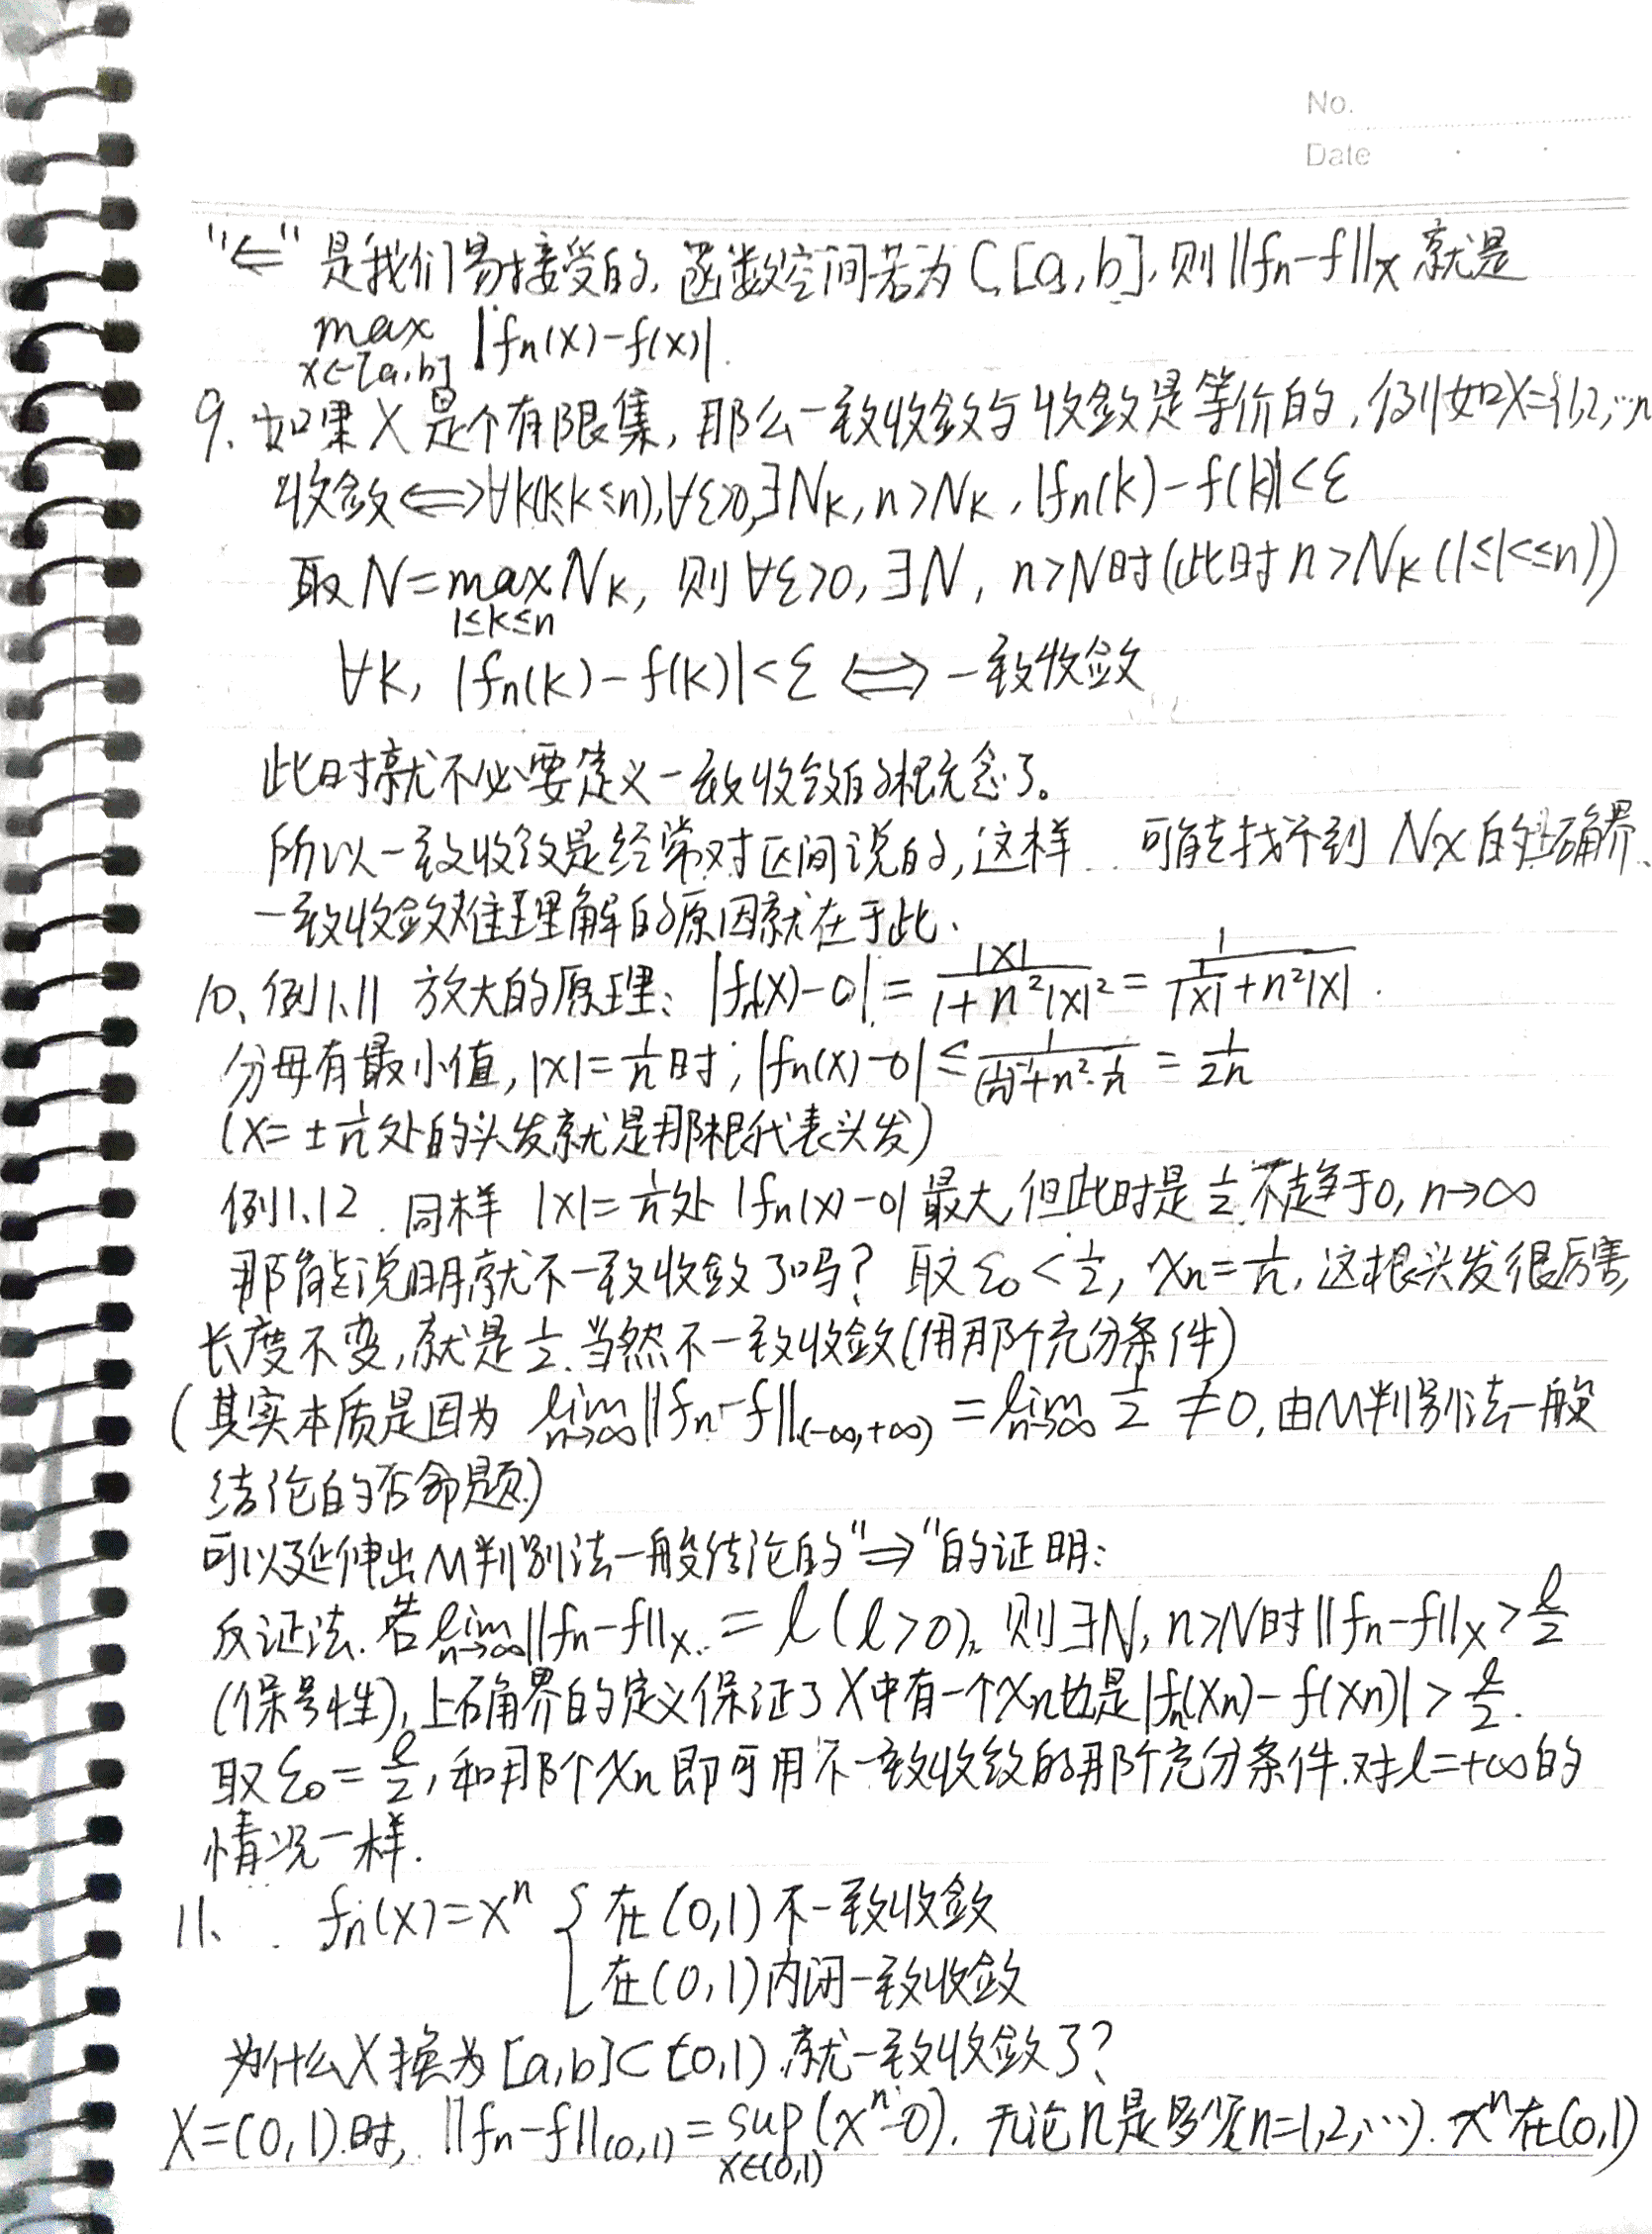 No.
Date
"⇐" 是我们易接受的, 函数空间若为C[a,b], 则||fn-f||x 就是
max x∈[a,b] |fn(x)-f(x)|.
9、如果X是个有限集, 那么一致收敛与收敛是等价的, 例如X={1,2,…n
收敛⟺∀k(1≤k≤n),∀ε>0,∃Nk, n>Nk, |fn(k)-f(k)|<ε
取N=max 1≤k≤n Nk, 则∀ε>0, ∃N, n>N时(此时n>Nk(1≤k≤n))
∀k, |fn(k)-f(k)|<ε ⟺ 一致收敛
此时就不必要定义一致收敛的概念了。
所以一致收敛是经常对区间说的, 这样 可能找不到 Nx的上确界、
一致收敛难理解的原因就在于此、
10、例1.11 放大的原理: |fn(x)-0| = |x|/(1+n²|x|²) = 1/(1/|x|+n²|x|).
分母有最小值, |x|=1/n时, |fn(x)-0| ≤ 1/((1/n)⁻¹+n²·1/n) = 1/2n
(x=±1/n处的头发就是那根代表头发)
例1.12. 同样 |x|=1/n处 |fn(x)-0|最大, 但此时是1/2, 不趋于0, n→∞
那能说明就不一致收敛了吗? 取ε0<1/2, xn=1/n, 这根头发很厉害,
长度不变, 就是1/2. 当然不一致收敛(用那个充分条件)
(其实本质是因为 lim n→∞ ||fn-f||(-∞,+∞) = lim n→∞ 1/2 ≠0, 由M判别法一般
结论的否命题)
可以延伸出M判别法一般结论的"⇒"的证明:
反证法. 若lim n→∞ ||fn-f||x = l (l>0), 则∃N, n>N时||fn-f||x>l/2
(保号性), 上确界的定义保证了X中有一个xn也是|fn(xn)-f(xn)|>l/2.
取ε0=l/2, 和那个xn即可用不一致收敛的那个充分条件. 对l=+∞的
情况一样.
11、 fn(x)=xⁿ { 在(0,1)不一致收敛
在(0,1)内闭一致收敛
为什么X换为[a,b]⊂(0,1)就一致收敛了?
X=(0,1)时, ||fn-f||(0,1)=sup x∈(0,1) (xⁿ-0). 无论n是多少(n=1,2,…). xⁿ在(0,1)